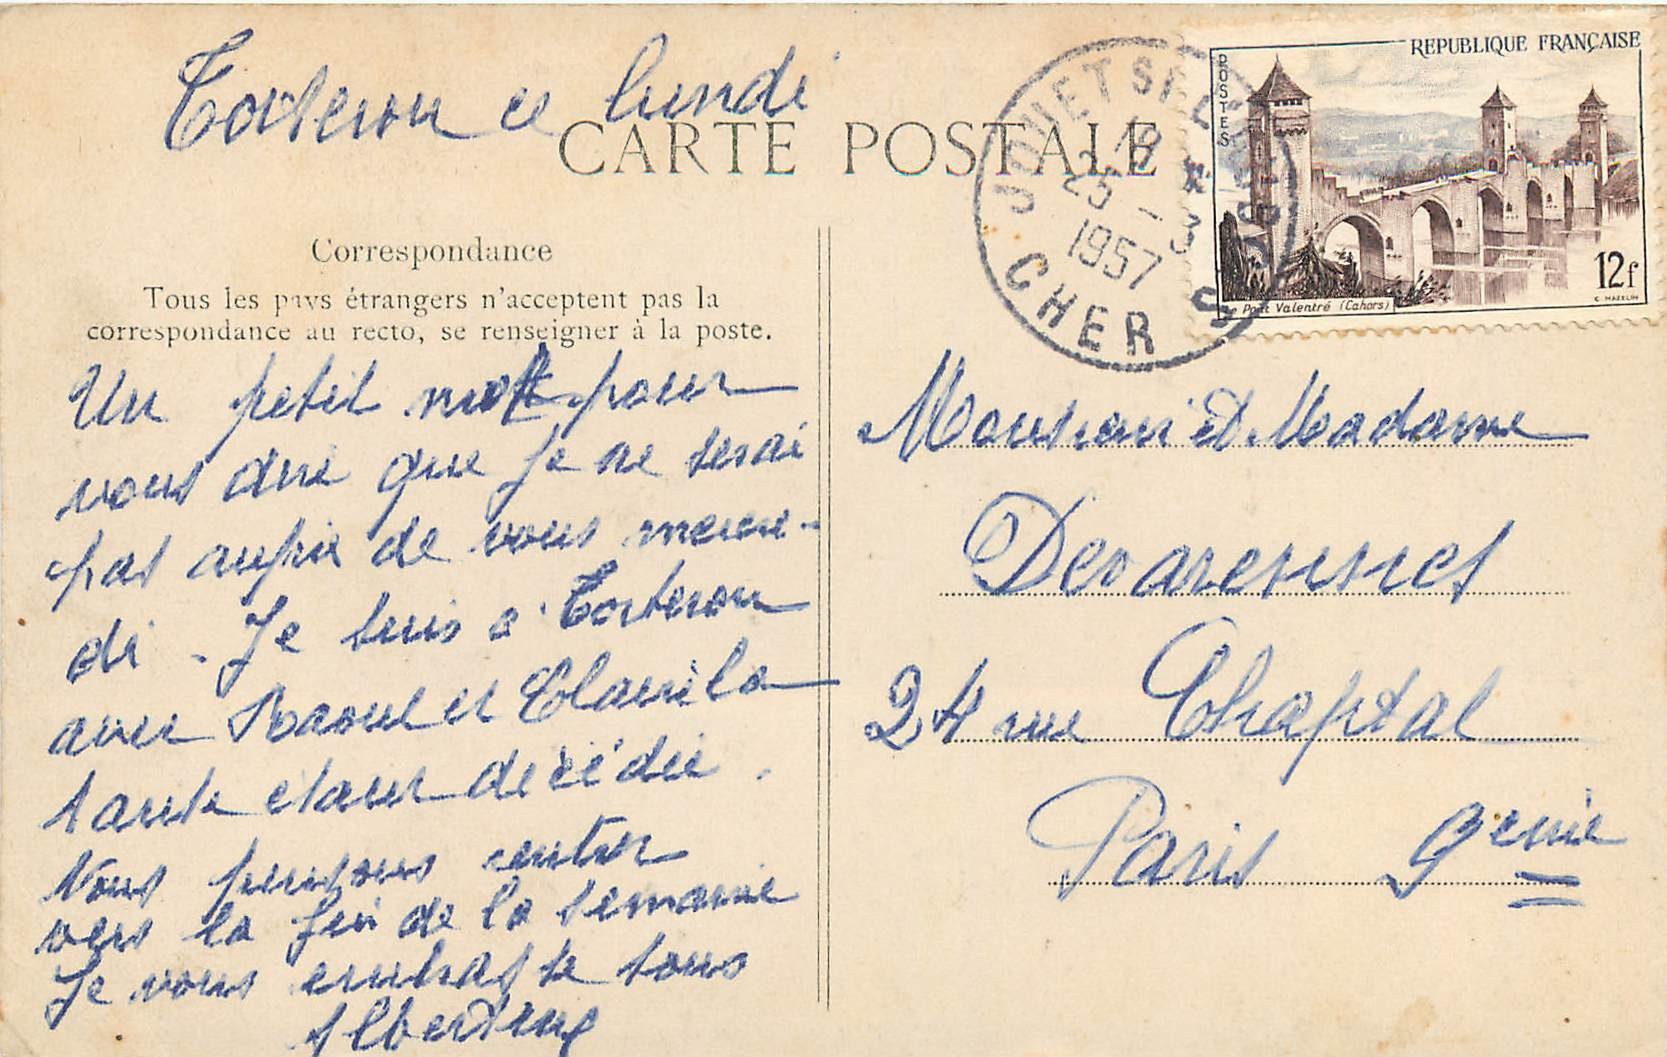 Torteron ce lundi
CARTE POSTALE
Correspondance
Tous les pays étrangers n'acceptent pas la
correspondance au recto, se renseigner à la poste.
Un petit mot pour
vous dire que je ne serai
pas auprès de vous mercre-
di. Je suis a Torteron
avec Raoul et Claire la
tante étant décédée.
Nous pensons rentrer
vers la fin de la semaine
Je vous embrasse tous
Albertine
JOUET SR L'AUBOIS
18 *
25 - 3
1957
CHER
REPUBLIQUE FRANÇAISE
POSTES
12f
Le Pont Valentré (Cahors)
C. MAZELIN
Monsieur et Madame
Devarennes
24 rue Chaptal
Paris 9eme